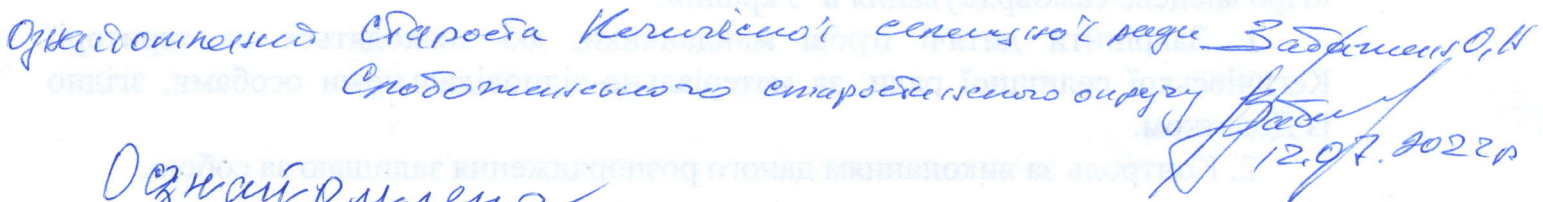 Ознайомлений староста Кегичівської селищної ради О,
Слобожанського старостинського округу
12.07.2022р
Ознайомлена